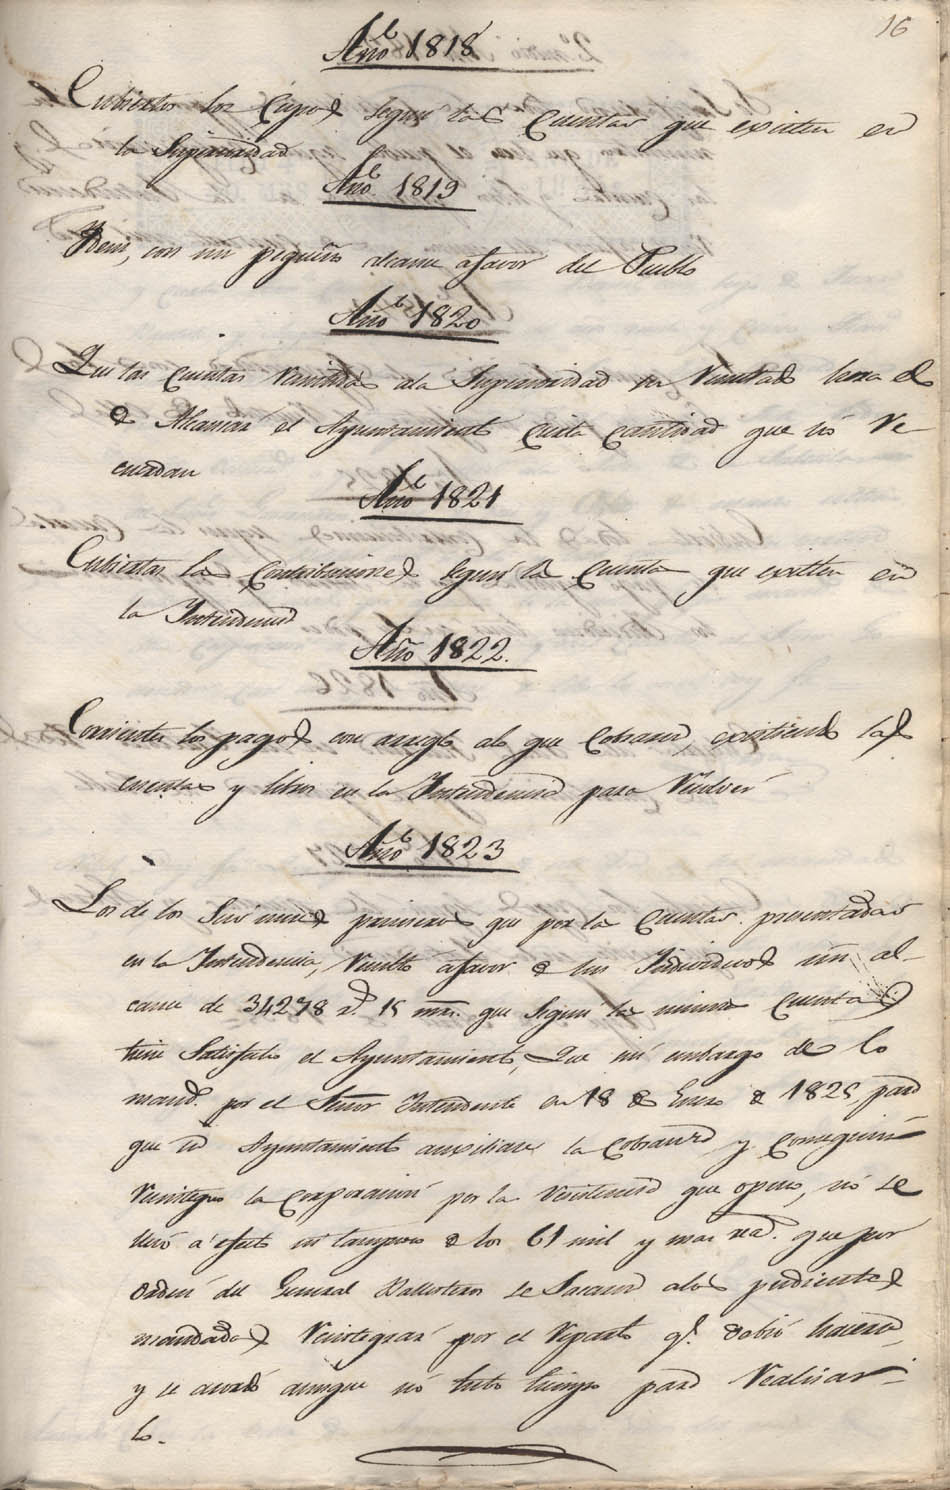 16
Año 1818
Cubiertos los Cupos segun las Cuentas que existen en
la Superioridad
Año 1819
Ydem, con un pequeño alcance afavor del Pueblo
Año 1820
En las Cuentas remitidas ala Superioridad su resultado
de Alcanzar el Ayuntamiento cierta cantidad que nó re-
cuerdan
Año 1821
Cubiertas las Contribuciones segun las Cuentas que existen en
la Yntendencia
Año 1822.
Corrientes los pagos con arreglo alo que Cobraron, existiendo las
cuentas y libros en la Yntendencia para resolver
Año 1823
Los de los Seis meses primeros que por las Cuentas presentadas
en la Yntendencia, resulto afavor de sus Yndividuos un al-
cance de 34278 rs. 15 mrs. que segun las mismas Cuentas
tiene Satisfecho el Ayuntamiento, Que sin embargo de lo
mando. por el Señor Yntendente en 18 de Enero de 1825, para
que el Ayuntamiento auxiliase la Cobranza y Consiguiera
reintegro la Corporacion por la resistencia que opuso, nó se
llevó á efecto ni tampoco de los 61 mil y mas rea. que por
orden del General Ballesteros se Sacaron alos pudientes
mandados reintegrar por el reparto qe. debió hacerse,
y se acordó aunque nó tubo tiempo para realizar-
lo.